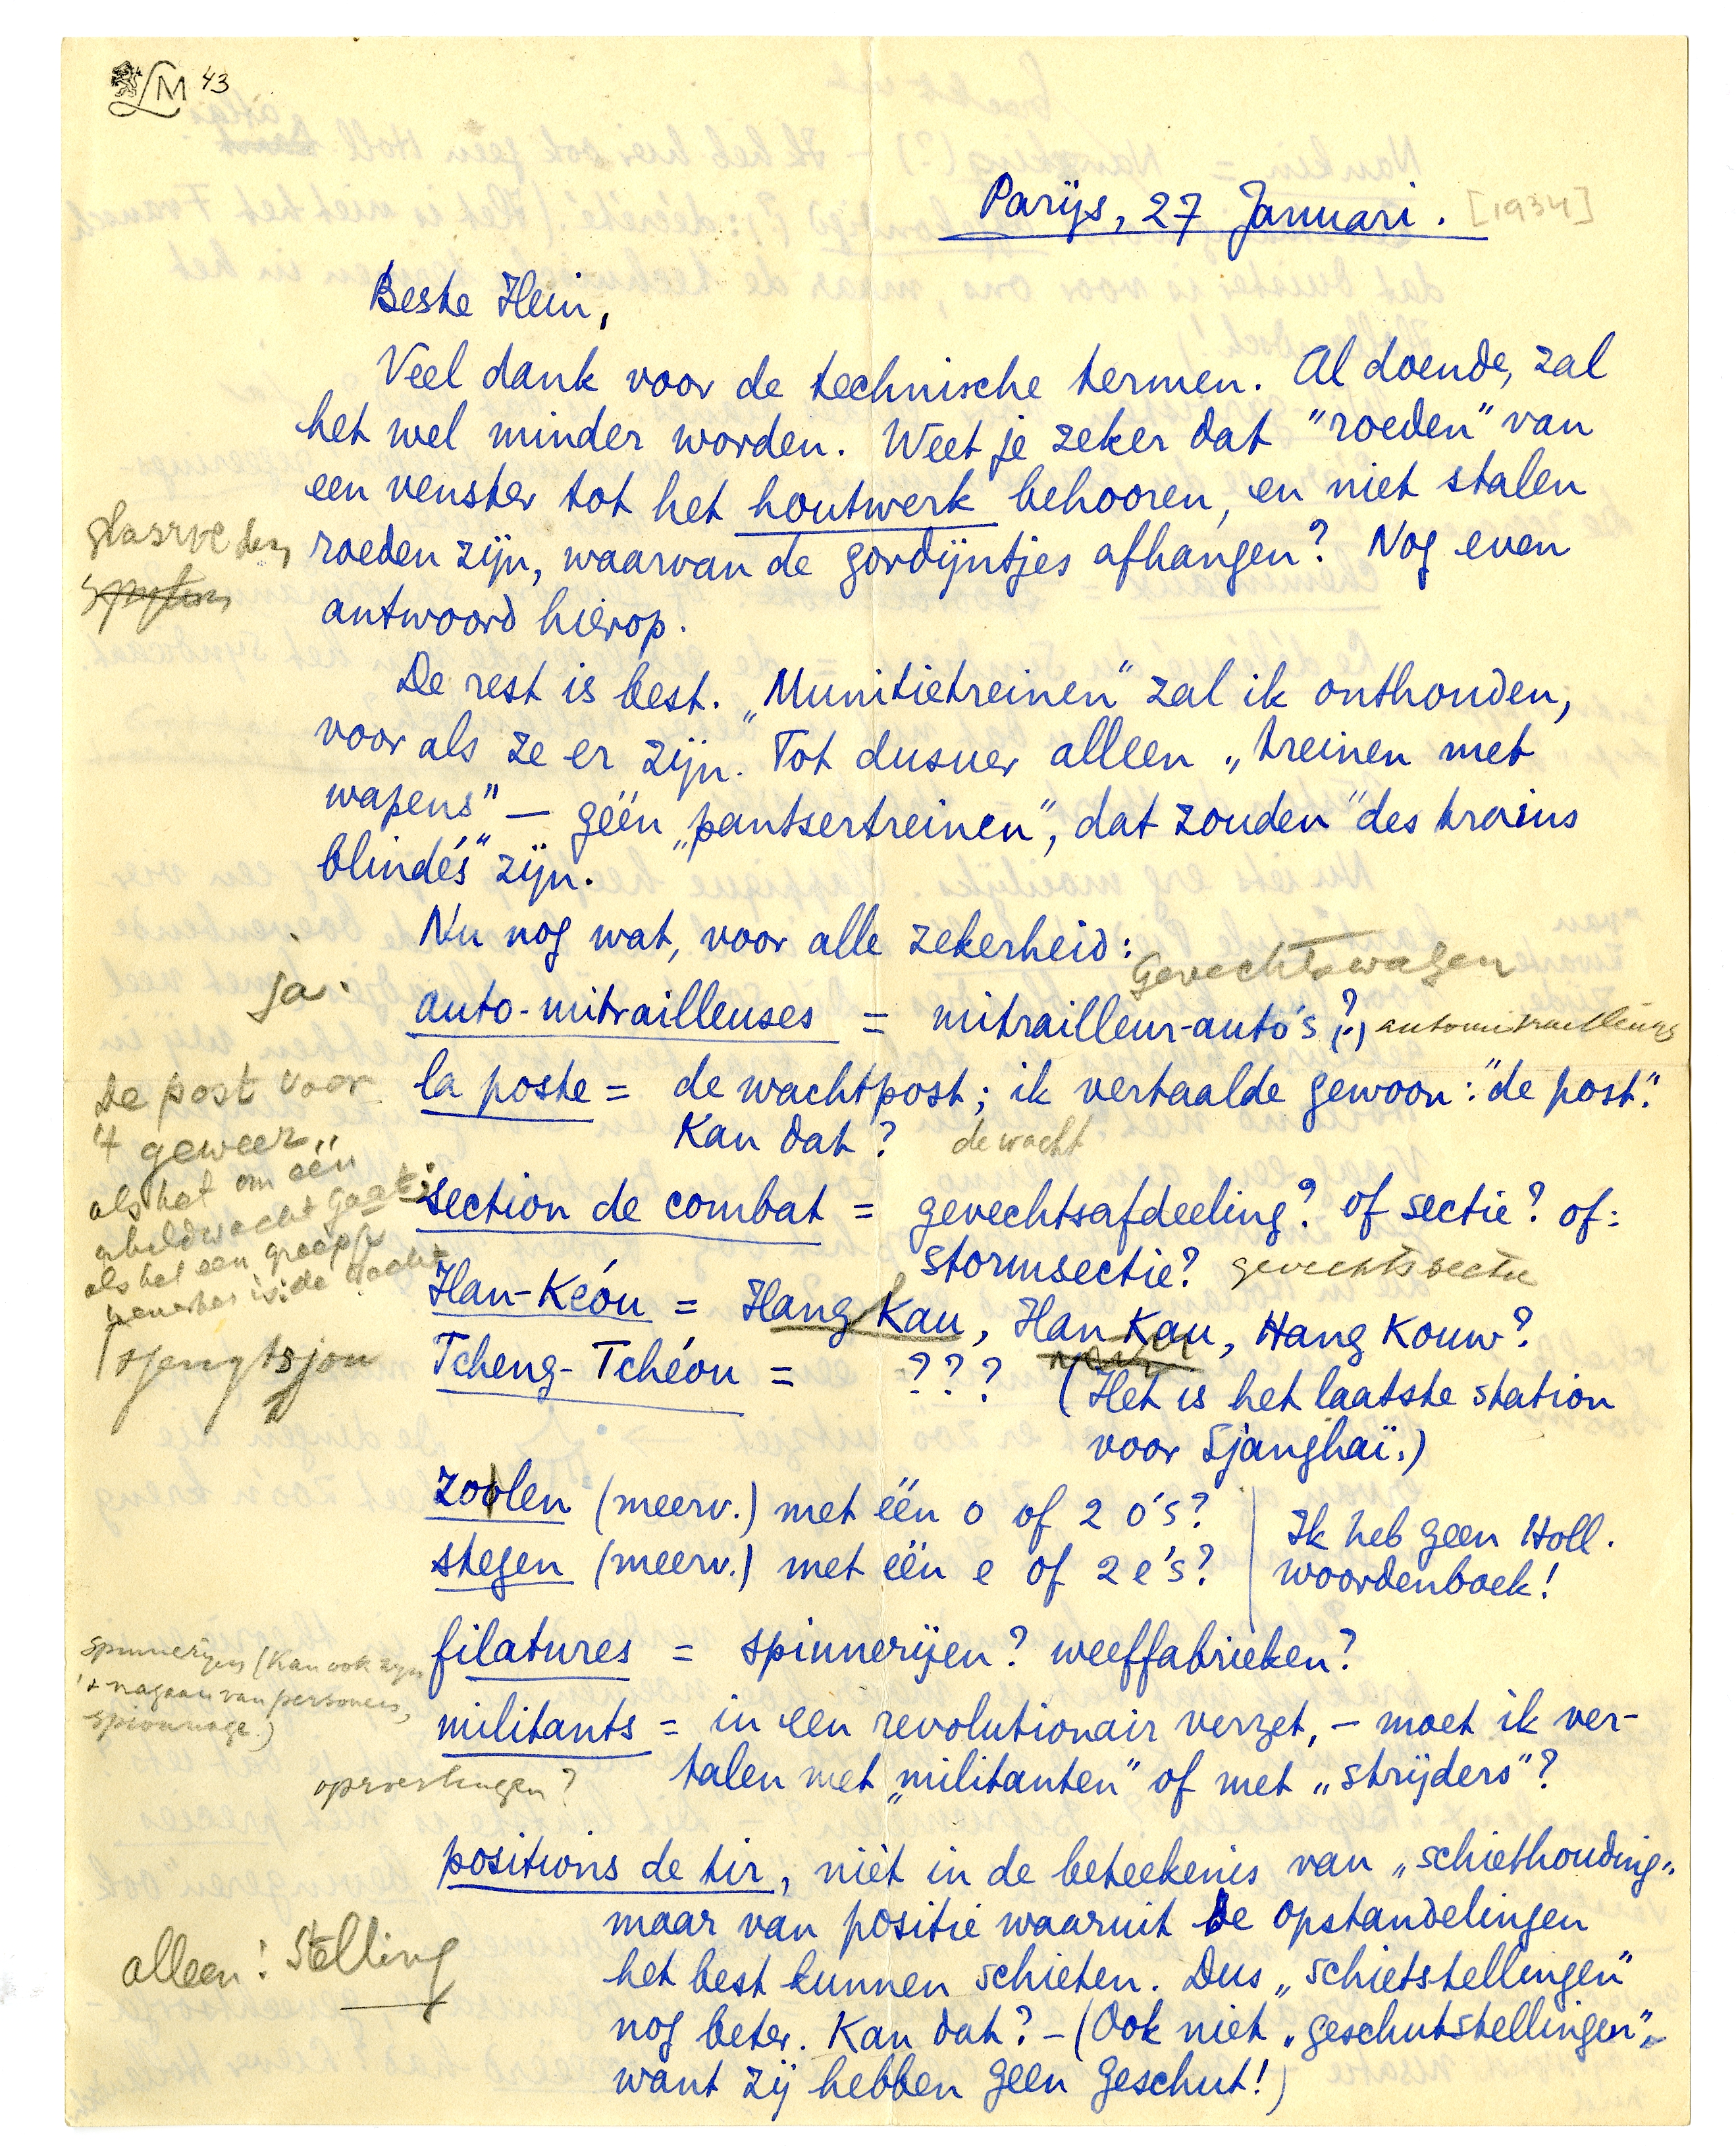 LM 43
Parijs, 27 Januari. [1934]
Beste Hein,
Veel dank voor de technische termen. Al doende, zal
het wel minder worden. Weet je zeker dat "roeden" van
een venster tot het houtwerk behooren, en niet stalen
glasroeden
roeden zijn, waarvan de gordijntjes afhangen? Nog even
antwoord hierop.
De rest is best. "Munitietreinen" zal ik onthouden,
voor als ze er zijn. Tot dusver alleen "treinen met
wapens" — géén "pantsertreinen", dat zouden "des trains
blindés" zijn.
Nu nog wat, voor alle zekerheid:
Gevechtswagen
ja.
auto-mitrailleuses = mitrailleur-auto's (?) automitrailleurs
la poste = de wachtpost; ik vertaalde gewoon: "de post".
Kan dat? de wacht
De post voor
't geweer"
als het om één
schildwacht gaat;
als het een groepje
is: de wacht
section de combat = gevechtsafdeeling? of sectie? of:
stormsectie? gevechtssectie
Han-Kéou = Hang Kau, Han Kau, Hang Kouw?
Tcheng-Tchéou = ??? (Het is het laatste station
voor Sjanghaï.)
Tsjengtsjou
zoolen (meerv.) met één o of 2 o's?
stegen (meerv.) met één e of 2 e's?
Ik heb geen Holl.
woordenboek!
filatures = spinnerijen? weeffabrieken?
spinnerijen (Kan ook zijn
't nagaan van personen,
spionnage.)
militants = in een revolutionair verzet, — moet ik ver-
talen met "militanten" of met "strijders"?
positions de tir, niét in de beteekenis van "schiethouding"
maar van positie waaruit de opstandelingen
het best kunnen schieten. Dus "schietstellingen"
alleen: Stelling
nog beter. Kan dat? — (Ook niet "geschutstellingen",
want zij hebben geen geschut!)